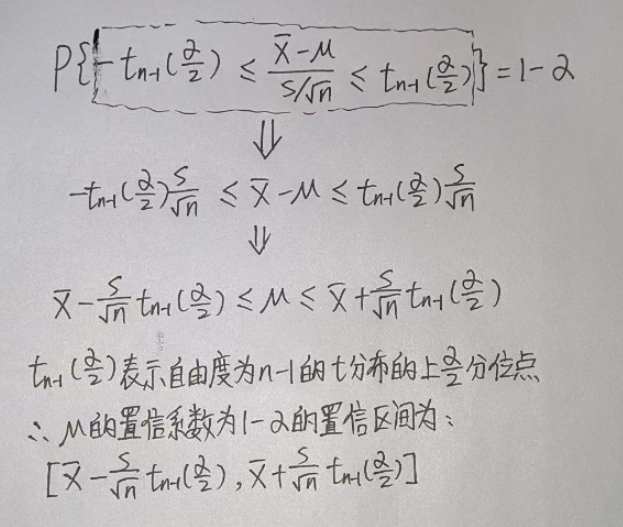 P{-tₙ₋₁(α/2) ≤ (x̄-μ)/(S/√n) ≤ tₙ₋₁(α/2)} = 1-α
⇓
-tₙ₋₁(α/2) S/√n ≤ x̄-μ ≤ tₙ₋₁(α/2) S/√n
⇓
x̄ - S/√n tₙ₋₁(α/2) ≤ μ ≤ x̄ + S/√n tₙ₋₁(α/2)
tₙ₋₁(α/2)表示自由度为n-1的t分布的上α/2分位点
∴ μ的置信系数为1-α的置信区间为:
[x̄ - S/√n tₙ₋₁(α/2), x̄ + S/√n tₙ₋₁(α/2)]